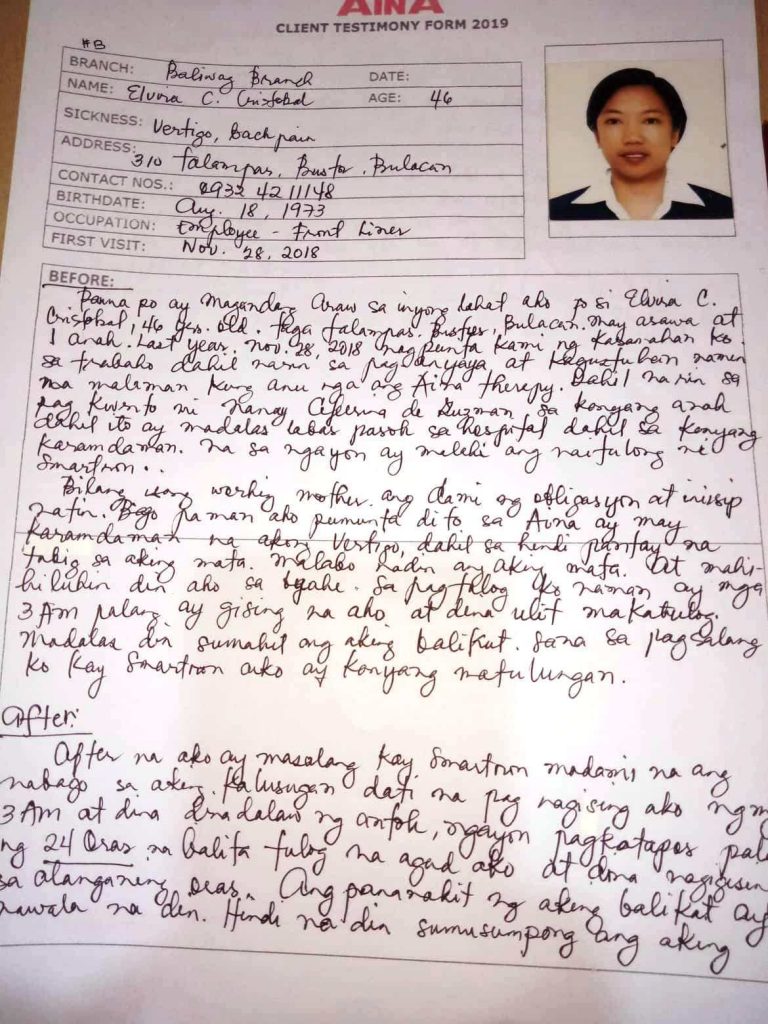 AINA
CLIENT TESTIMONY FORM 2019
#B
BRANCH: Baliwag Branch DATE:
NAME: Elvira C. Cristobal AGE: 46
SICKNESS: Vertigo, back pain
ADDRESS: 310 Talampas, Bustos, Bulacan
CONTACT NOS.: 0932 42 11148
BIRTHDATE: Aug. 18, 1973
OCCUPATION: Employee - Front Liner
FIRST VISIT: Nov. 28, 2018
BEFORE:
Pauna po ay magandang araw sa inyong lahat ako po si Elvira C.
Cristobal, 46 yrs. old. taga Talampas, Bustos, Bulacan. may asawa at
1 anak. Last year, nov. 28, 2018 nagpunta kami ng kasamahan ko
sa trabaho dahil narin sa pag anyaya at kagustuhan namin
na malaman kung anu nga ang Aina therapy. Dahil na rin sa
pag kwento ni Nanay de Guzman sa kanyang anak
dahil ito ay madalas labas pasok sa hospital dahil sa kanyang
karamdaman. na sa ngayon ay malaki ang naitulong ni
Smartron..
Bilang isang working mother. ang dami ng obligasyon at iniisip
natin. Bago paman ako pumunta dito sa Aina ay may
karamdaman na akong Vertigo, dahil sa hindi pantay na
tubig sa aking mata. malabo nadin ang aking mata. At mahi-
hiluhin din ako sa byahe. Sa pagtulog ko naman ay mga
3 AM palang ay gising na ako, at dena ulit makatulog.
Madalas din sumakit ang aking balikat. Sana sa pagsalang
ko kay Smartron ako ay kanyang matulungan.
After:
After na ako ay masalang kay Smartron madami na ang
nabago sa aking kalusugan dati na pag nagising ako ng
3 AM at dina dinadalaw ng antok, ngayon pagkatapos
ng 24 Oras na balita tulog na agad ako at dina
sa alanganing oras. Ang pananakit ng aking balikat ay
nawala na din. Hindi na din sumusumpong ang aking